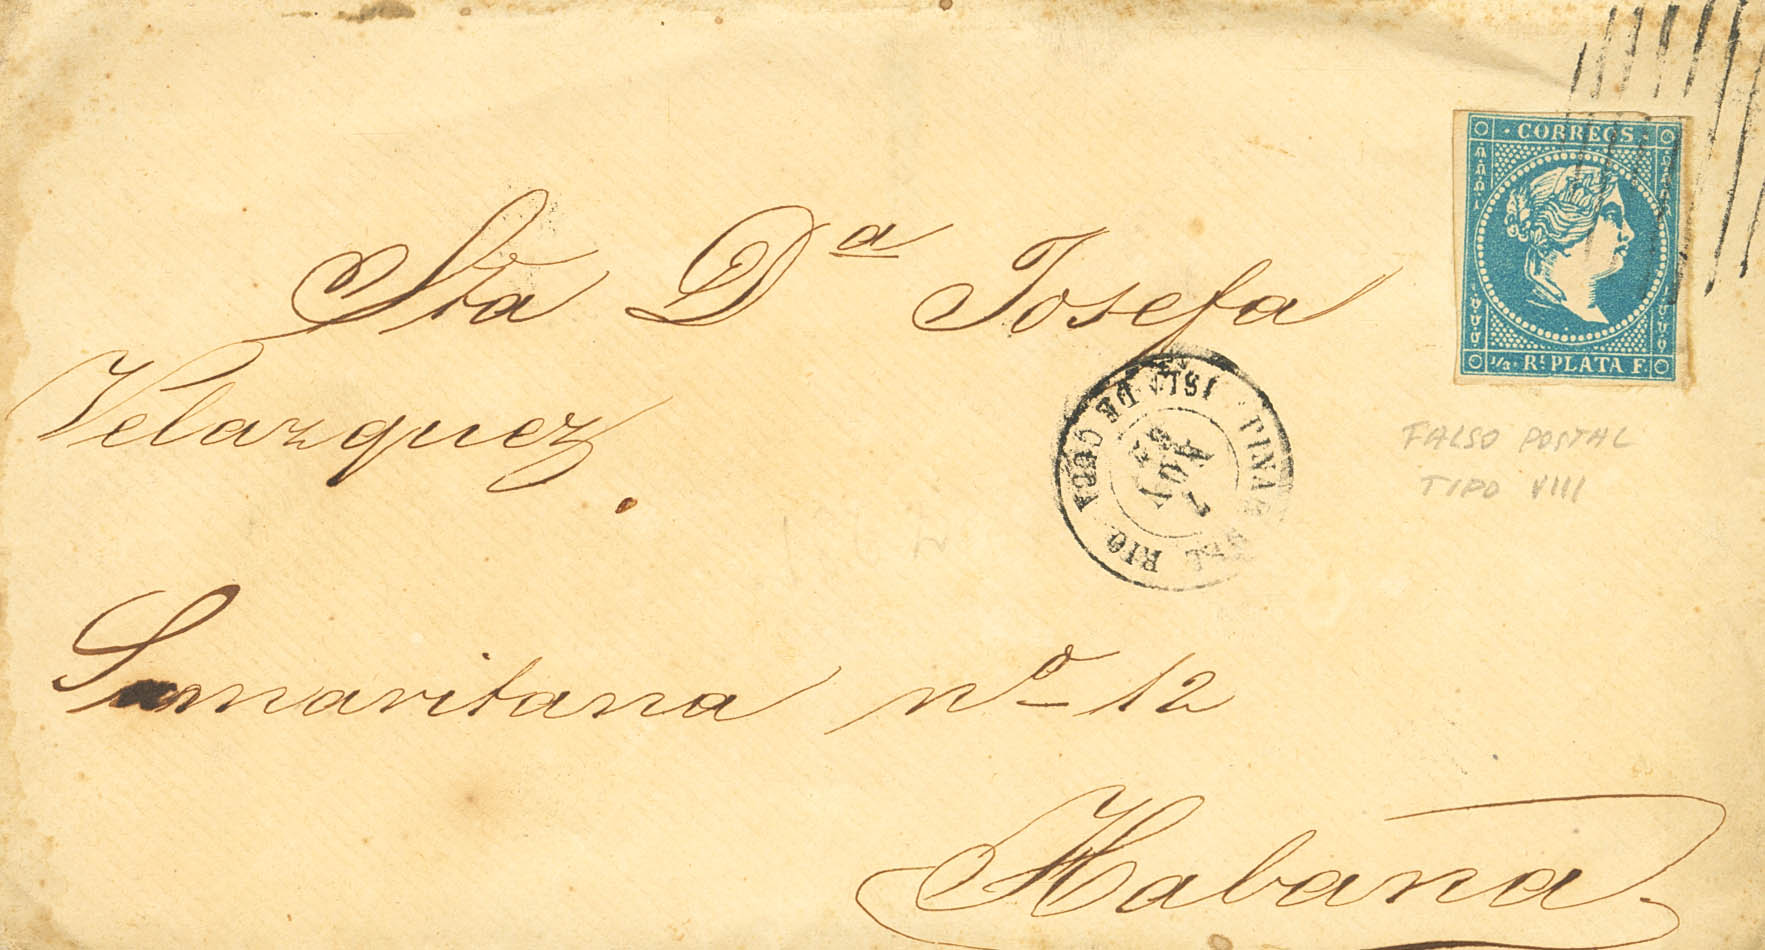 CORREOS
½ Rˡ PLATA F.
FALSO POSTAL
TIPO VIII
Sta Dª Josefa
Velazquez
PINAR DEL RIO
ISLA DE CUBA
Samaritana nº 12
Habana